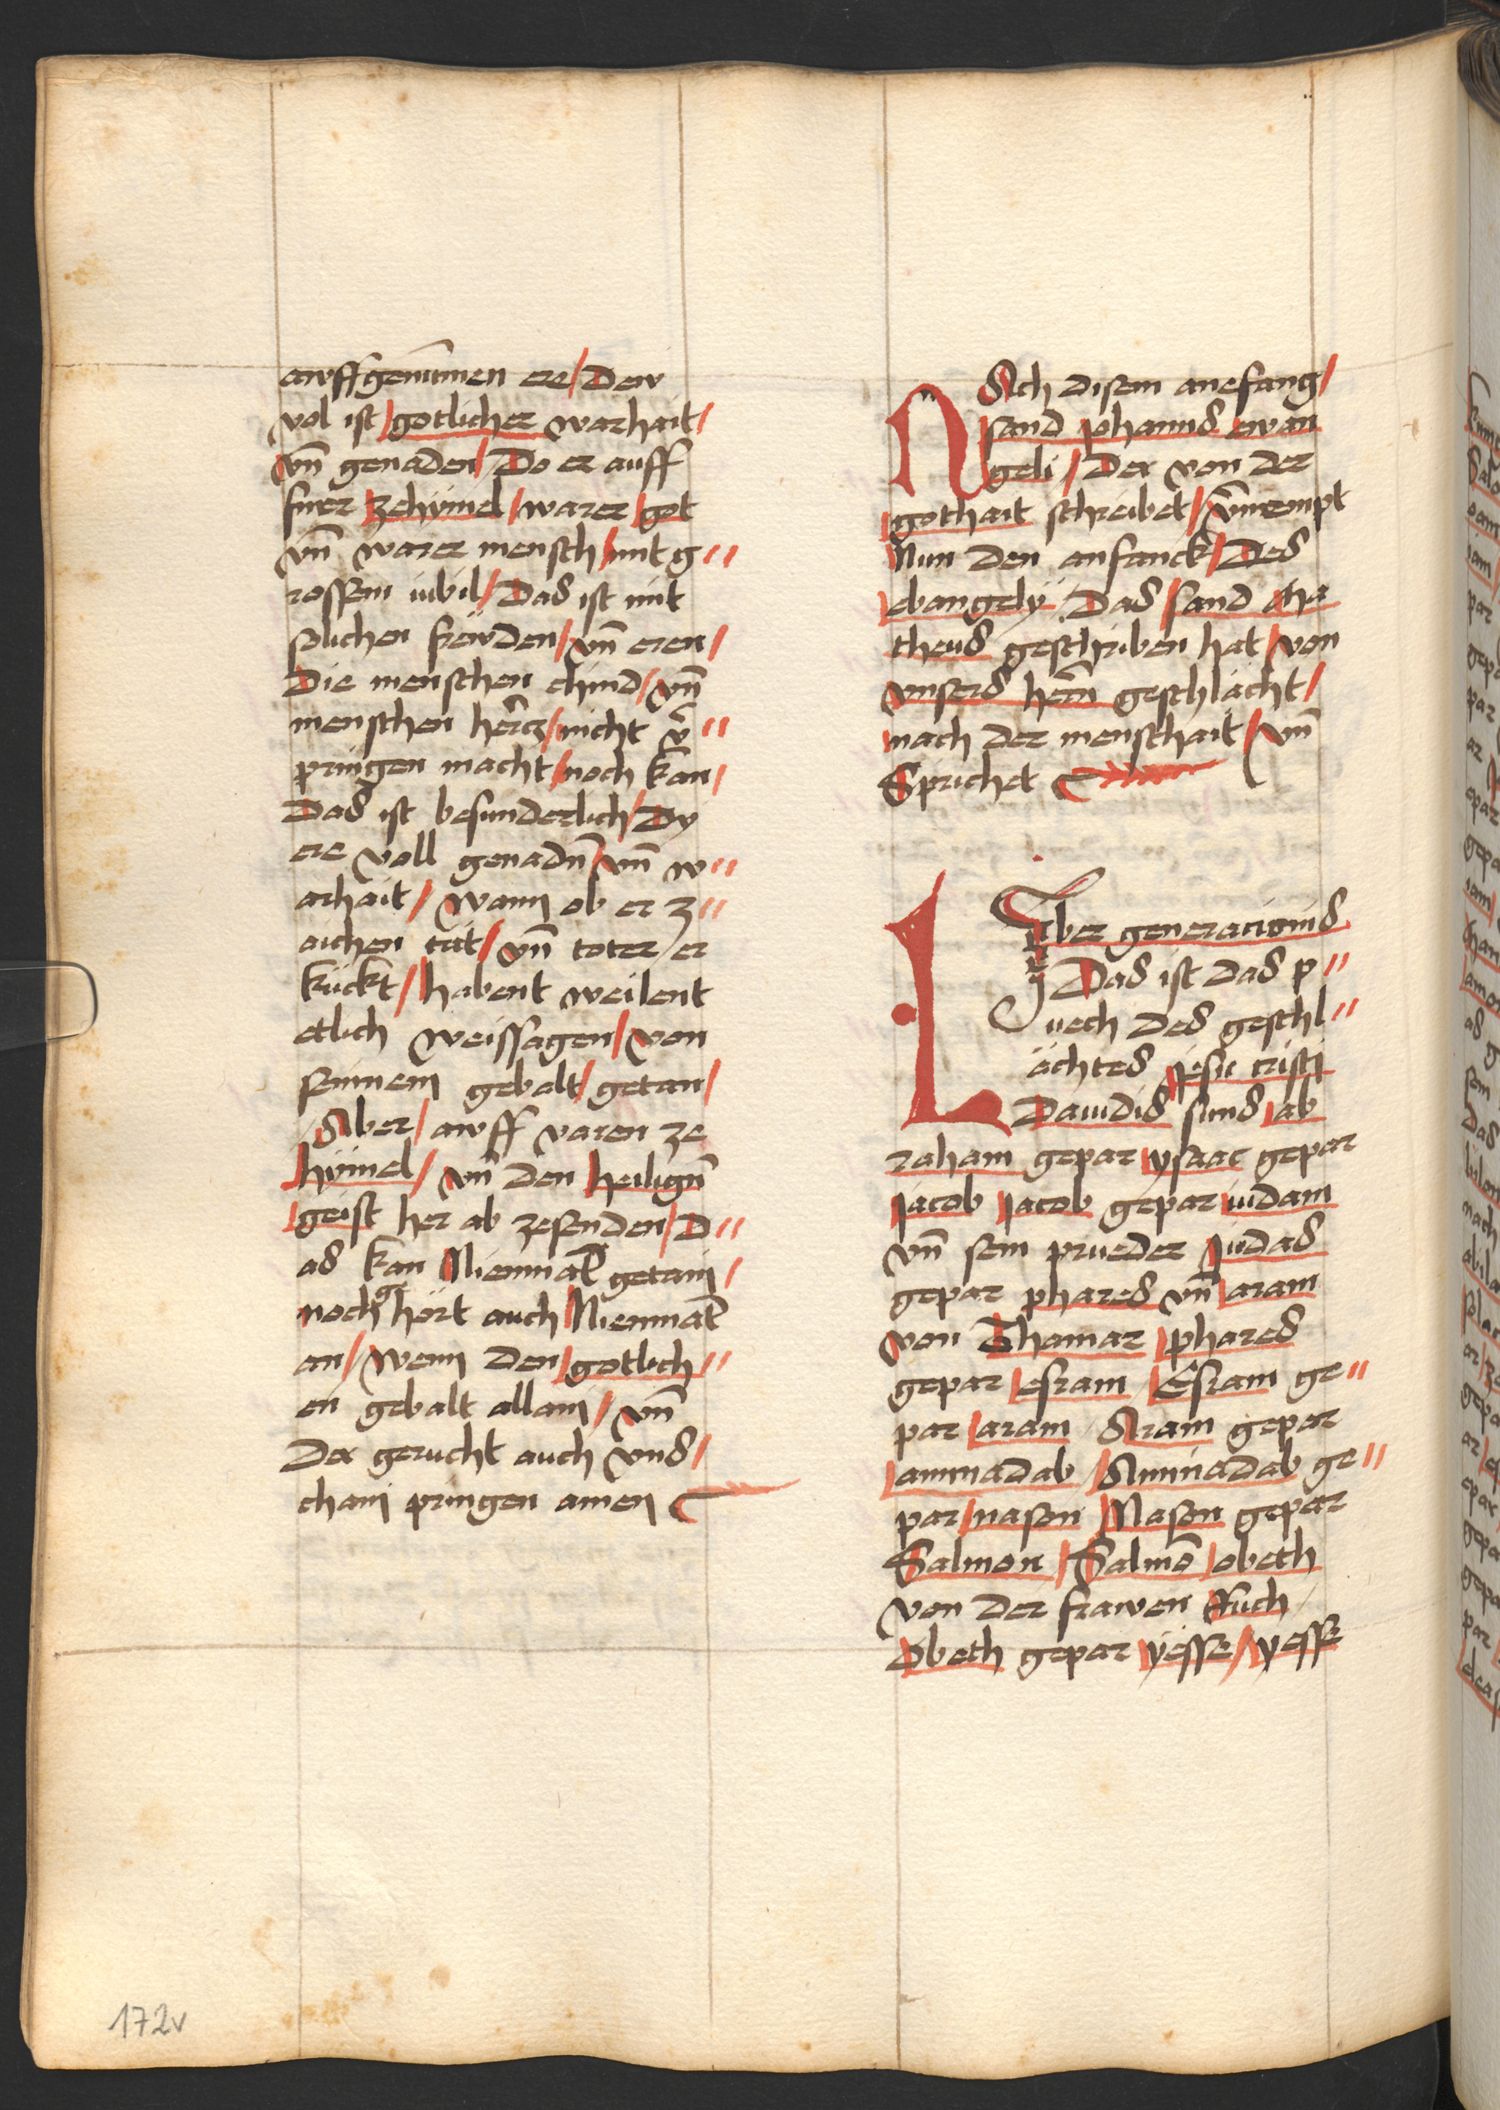 awffgenūmen ere / Dew
vol ist / gotlicher warhait /
vn̄ genaden / Do er auff
fuer zehymel / warer / got
vn̄ warer mensch / mit g〃
rossem iubil / Das ist mit
solichen frewden / vn̄ eren /
Die menschen chind / vn̄
menschen hercz / nicht v̄〃
pringen macht / noch kan /
Das ist besunderlich / Dy
ere voll genadn̄ / vn̄ w〃
arhait / wann ob er z〃
aichen tät / vn̄ toter er
kückt / habent weilent
etlich weissagen / von
seinnem gebalt / getan /
Aber / awff varen ze
hymel / vn̄ den heilign̄
geist her ab zesenden / D〃
as kan Niemmāt getain /
noch gehört auch Niemmāt
an / Wenn den / gotlich〃
en gebalt allain / vn̄
Der geruecht auch vnns /
chain pringen amen
NAch disem anefang /
sand Johannis ewan
geli / Der von der
gothait schreibet / vernempt
Nun den anfanck / Des
ebangely Das / sand Ma
theus geschriben hat / von
vnsers herrn̄ geschlächt /
nach der menschait / vn̄
Sprichet
LIber generacionis
Das ist das p〃
uech des geschl〃
ächtes jesu cristi
Dauidis suns / ab
raham gepar ysaac gepar
Jacob Jacob gepar iudam
vn̄ sein prueder Judas
gepar phares vn̄ aram
von Thamar / phares
gepar esram / Esram ge〃
par / aram / Aram gepar
aminadab / Aminadab ge〃
par / nason Nason gepar
Salmon / Salmō / obeth
von der frawen Ruch
Obeth gepar yesse / yesse
172v